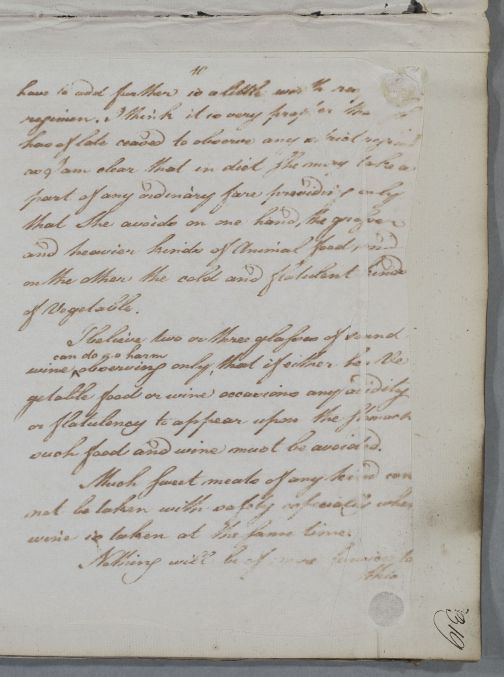 have to add further is a little with re
regimen. I think it is very proper that
has of late ceased to observe any strict regimen
so I am clear that in diet She may take a
part of any ordinary fare providing only
that She avoids on one hand, the grosser
and heavier kinds of Animal food and
on the other the cold and flatulent kinds
of Vegetable.
I believe two or three glasses of sound
can do no harm
wine observing only, that if either the Ve
getable food or wine occasions any acidity
or flatulency to appear upon the Stomach
such food and wine must be avoided.
Much Sweet meats of any kind can
not be taken with safety especially when
wine is taken at the same time.
Nothing will be of more Service to
this
319